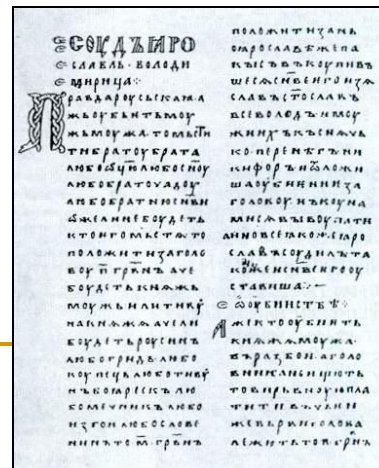 СОУДЪ ꙖРО
СЛАВЛЬ · ВОЛОДИ
МИРИЦА⁘
ПРАВДА РОУСЬСКАꙖ А
ЖЬ ОУБЬЕТЬ МОУ
ЖЬ МОУЖА · ТО МЬСТИ
ТИ БРАТОУ БРАТА
ЛЮБО ѾЦЮ ЛЮБО СНОУ
ЛЮБО БРАТОУЧАДОУ
ЛЮБО БРАТНЮ СНВИ
ѠЖЕ ЛИ НЕ БОУДЕТЬ
КТО ИГО МЬСТѦ ТО
ПОЛОЖИТИ ЗА ГОЛО
ВОУ П ГРВНЪ АЧЕ
БОУДЕТЬ КНѦЖЬ
МОУЖЬ ИЛИ ТИВОУ
НА КНѦЖѦ АЧЕ ЛИ
БОУДЕТЬ РОУСИНЪ
ЛЮБО ГРИДЬ ЛЮБО
КОУПЕЦЬ ЛЮБО ТИВУ
НЪ БОꙖРЕСКЪ ЛЮ
БО МЕЧНИКЪ ЛЮБО
ИЗГОИ ЛЮБО СЛОВЕ
НИНЪ ТО М ГРВНЪ
ПОЛОЖИТИ ЗА НЬ
ПО ꙖРОСЛАВѢ ЖЕ ПА
КЫ СЪВЪКОУПИВЪ
ШЕСѦ СНВЕ ИГО ИЗѦ
СЛАВЪ СТОСЛАВЪ
ВСЕВОЛОДЪ И МОУ
ЖИ ИХЪ КЪСНѦЧЬ
КО ПЕРЕНѢГЪ НИ
КИФОРЪ И ѾЛОЖИ
ША ОУБИЕНИЕ ЗА
ГОЛОВОУ НЪ КОУНА
МИ СѦ ВЫКОУПАТИ
А ИНО ВСЕ ꙖКО ЖЕ ꙖРО
СЛАВЪ СОУДИЛЪ ТА
КО ЖЕ И СНВЕ ИГО ОУ
СТАВИША
Ѡ ОУБИИСТВѢ⁘
АЖЕ КТО ОУБИЕТЬ
КНѦЖА МОУЖА
ВЪ РАЗБОИ А ГОЛО
ВНИКА НЕ ИЩЮТЬ
ТО ВИРЬВНОУЮ ПЛА
ТИТИ ВЪ ЧЬЕИ
ЖЕ ВЬРВИ ГОЛОВА
ЛЕЖИТЬ ТО П ГРВНЪ